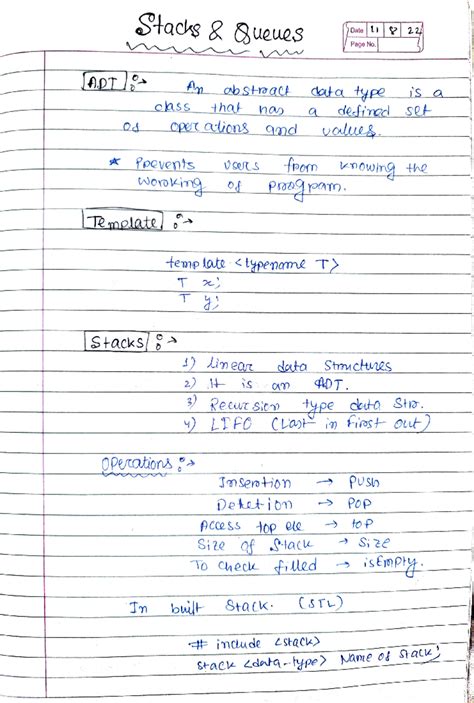 Stacks & Queues
Date 11 8 22
Page No.
ADT :→ An abstract data type is a
class that has a defined set
of operations and values.
* Prevents users from knowing the
working of program.
Template :→
template <typename T>
T x;
T y;
Stacks :→
1) linear data structures
2) It is an ADT.
3) Recursion type data Str.
4) LIFO (Last in First out)
Operations :→
Insertion → Push
Deletion → Pop
Access top ele → top
Size of Stack → Size
To check filled → isEmpty.
In built Stack. (STL)
# include <stack>
Stack <data-type> Name of Stack;